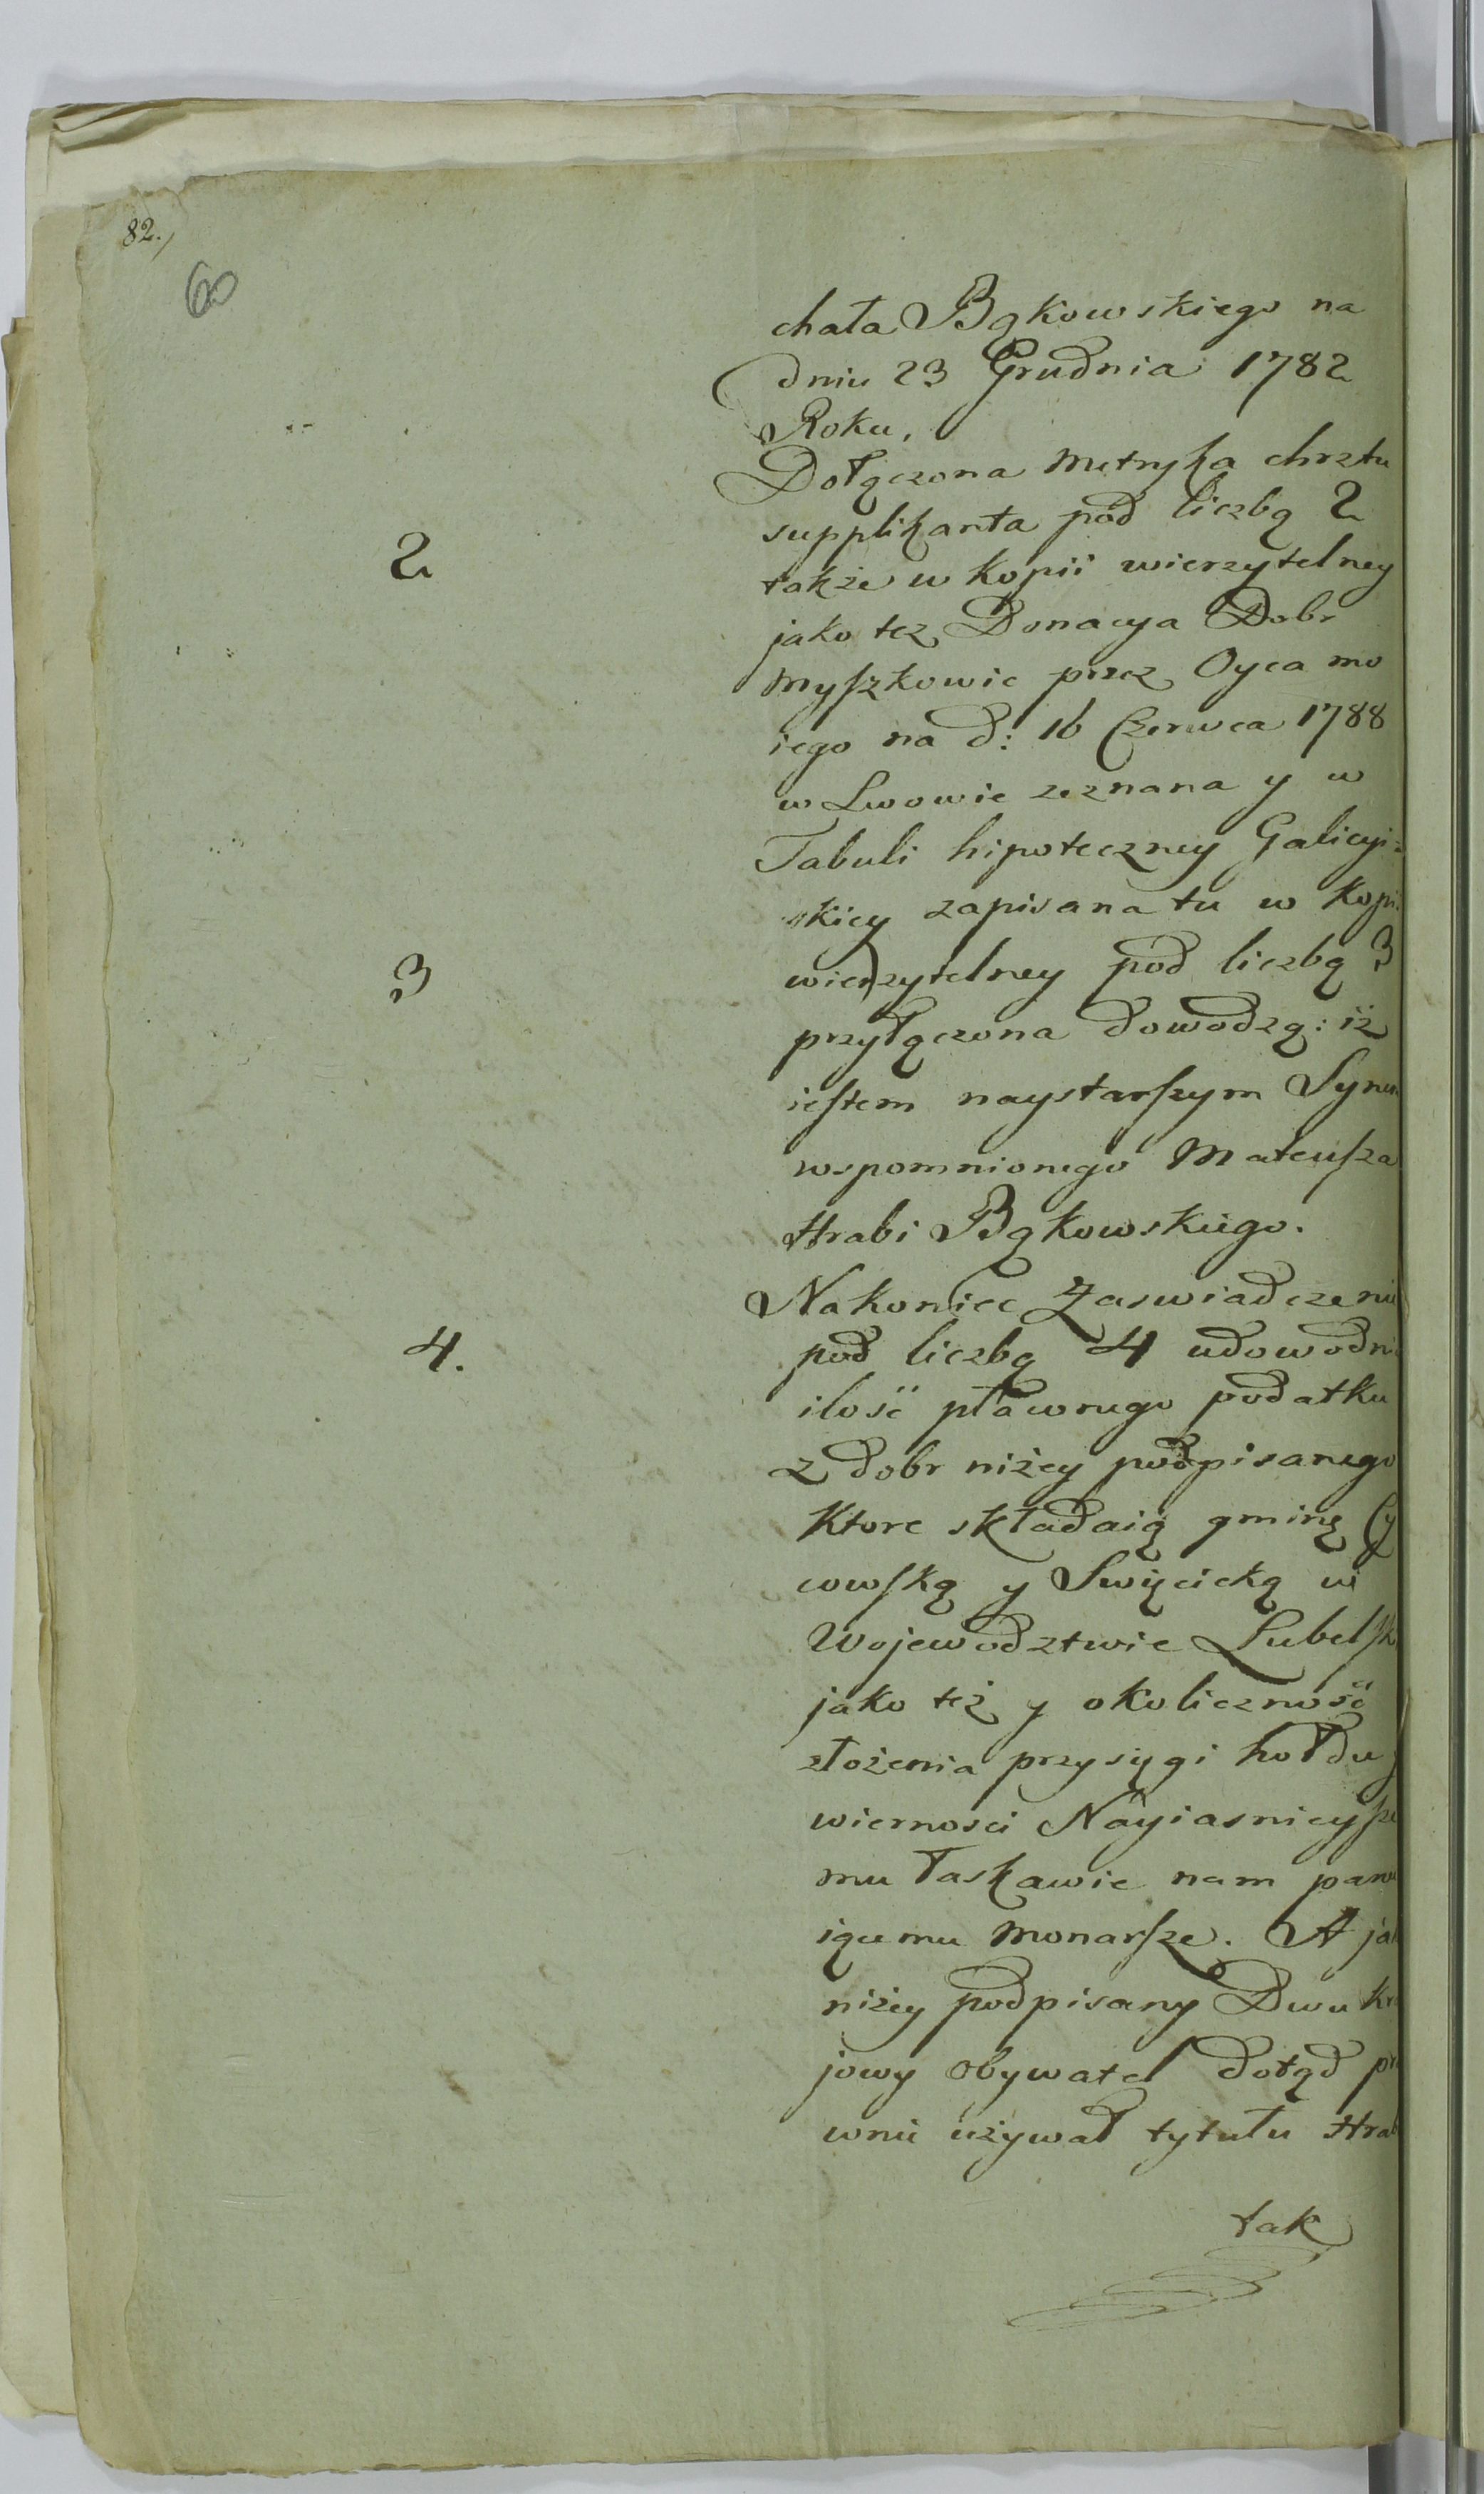 82.
60
chała Bąkowskiego na
dniu 23 Grudnia 1782
Roku,
Dołączona Metryka chrztu
supplikanta pod liczbą 2
2
także w kopii wierzytelney
jako tez Donacya Dobr
Myſzkowic przez Oyca mo
iego na d: 16 Czerwca 1788
w Lwowie zeznana y w
Tabuli hipoteczney Galicyi:
skiey zapisana tu w Kopi
wierzytelney pod liczbą 3
3
przyłączona dowodzą: iż
ieſtem naystarſzym Synem
wspomnionego Mateuſza
Hrabi Bąkowskiego.
Nakoniec Zaswiadczeni
pod liczbą 4 udowodni
4.
ilość pławnego podatku
z dobr niżey podpisanego
Ktore składaią gminę Cy
cowſką y Swięcicką w
Wojewodztwie Lubelſk
jako też y okoliczność
złożenia przysięgi hołdu y
wiernosci Nayiasnieyſze
mu łaskawie nam panu
iącemu Monarſze. A jak
niżey podpisany Dwu kra
jowy Obywatel dotąd pra
wnie używał tytułu Hrab
tak